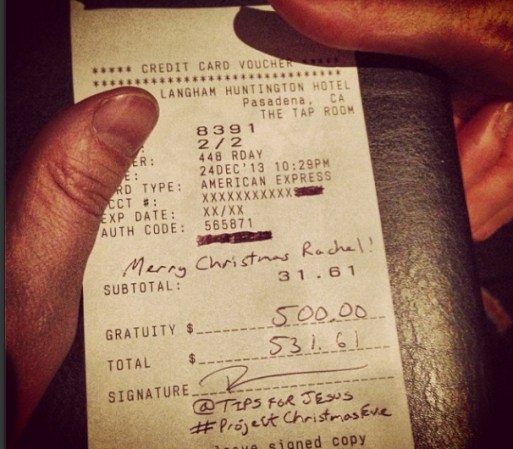 ***** CREDIT CARD VOUCHER *****
LANGHAM HUNTINGTON HOTEL
Pasadena, CA
THE TAP ROOM
8391
: 2/2
ER: 448 RDAY
E: 24DEC'13 10:29PM
RD TYPE: AMERICAN EXPRESS
CCT #: XXXXXXXXXXX
EXP DATE: XX/XX
AUTH CODE: 565871
Merry Christmas Rachel!
SUBTOTAL: 31.61
GRATUITY $ 500.00
TOTAL $ 531.61
SIGNATURE
@TIPS FOR JESUS
#Project Christmas Eve
leave signed copy